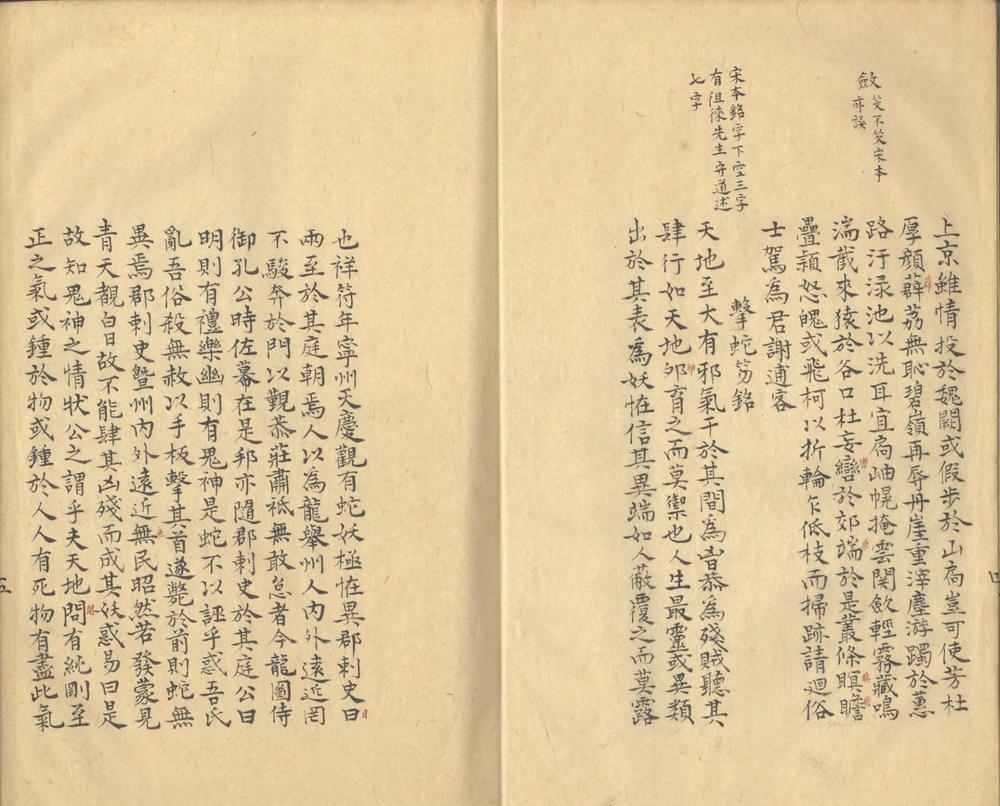 斂
不宋本
亦誤
上京雖情投於魏闕或假步於山扃豈可使芳杜
厚顏薜荔無恥碧嶺再辱丹崖重滓塵游躅於蕙
路汙渌池以洗耳宜扃岫幌掩雲関斂輕霧藏鳴
湍截來猿於谷口杜妄巒於郊端於是叢條瞋膽
疊穎怒魄或飛柯以折輪乍低枝而掃跡請迴俗
士駕為君謝逋客
宋本銘字下空三字
有徂徠先生守道述
七字
擊蛇笏銘
天地至大有邪氣干於其間為㐫恭為殘賊聽其
肆行如天地夘育之而莫禦也人生最靈或異類
出於其表為妖恠信其異端如人蔽覆之而莫露
四
也祥符年寧州天慶觀有蛇妖極恠異郡刺史曰
日
兩至於其庭朝焉人以為龍舉州人内外遠近罔
不駿奔於門以覲恭莊肅祗無敢怠者今龍圖侍
御孔公時佐幕在是邦亦隨郡刺史於其庭公曰
明則有禮樂幽則有鬼神是蛇不以誣乎惑吾民
亂吾俗殺無赦以手板擊其首遂斃於前則蛇無
異焉郡刺史暨州内外遠近無民昭然若發蒙見
青天覩白日故不能肆其凶殘而成其妖惑易曰是
故知鬼神之情狀公之謂乎夫天地問有純剛至
間
正之氣或鍾於物或鍾於人人有死物有盡此氣
五